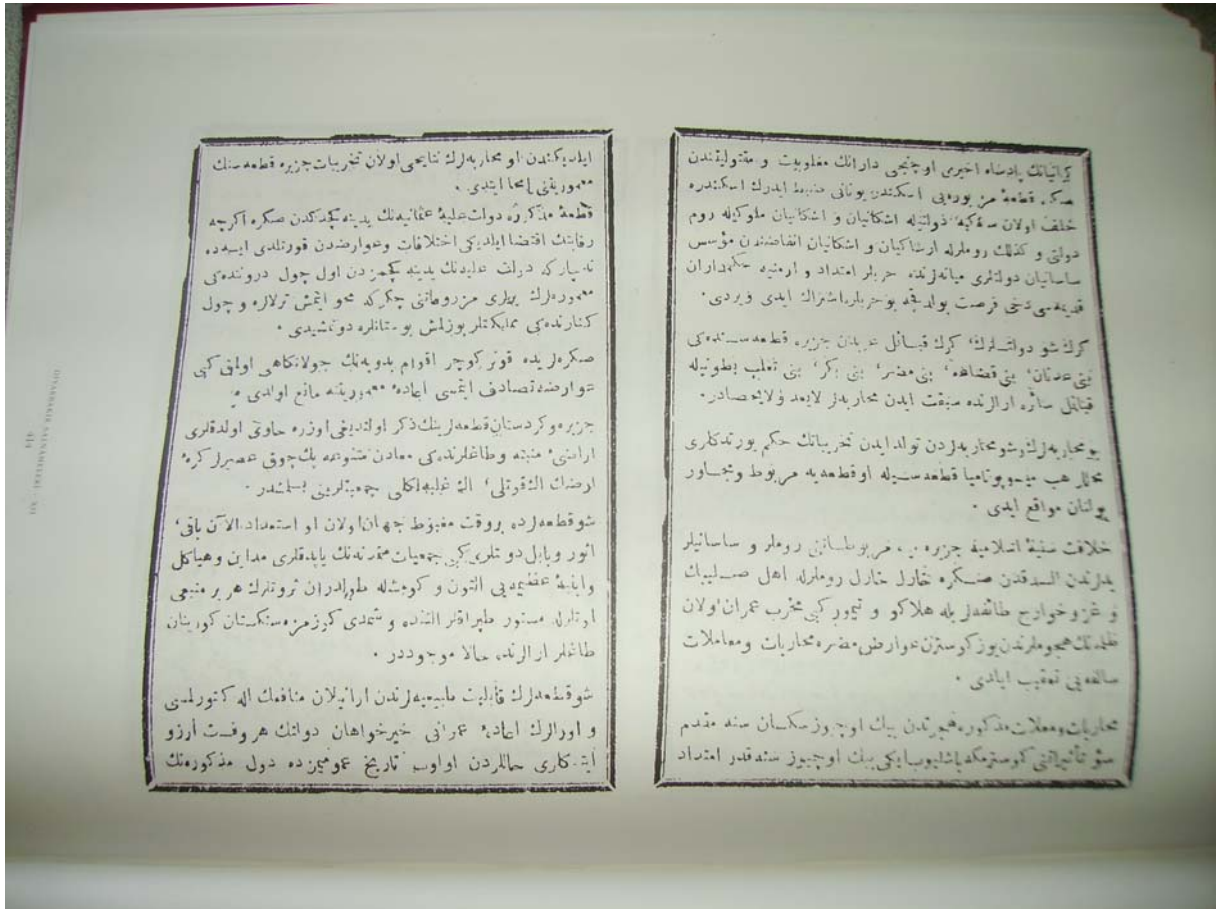 كيانيانك پادشاه اخيرى اوچنجى دارانك مغلوبيت و مقتوليتندن
صكره قطعۀ مزبوره‌يى اسكندر يونانى ضبط ايدرك اسكندره
خلف اولان دولتيله اشكانيان و اشكانيان ملوكيله روم
دولتى و كذلك روملرله ارشاكيان و اشكانيان انقاضندن مؤسس
ساسانيان دولتلرى ميانه‌لرنده حربلر امتداد و ارمنيه حكمداران
قديمه‌سى دخى فرصت بولدقجه بو حربلره اشتراك ايدى ويردى.
كرك شو دولتلرك، كرك قبائل عربدن جزيره قطعه‌سنده‌كى
بنى عدنان، بنى قضاعه، بنى مضر، بنى بكر، بنى تغلب بطونيله
قبائل سائره ارالرنده سبقت ايدن محاربه‌لر لايعد ولايحصادر.
بو محاربه‌لرك، شو محاربه‌لردن تولد ايدن تخريباتك حكم يورتدكلرى
محللر هب ميزوپوتاميا قطعه‌سيله او قطعه‌يه مربوط ومجاور
بولنان مواقع ايدى.
خلافت سنيۀ اسلاميه جزيره يى روملر و ساسانيلر
يدلرندن الدقدن صكره خلال خلال روملرله اهل صليبك
و غز و خوارج طائفه‌لريله هلاكو و تيمور كبى مخرب عمران اولان
ظلمه‌نك هجوملرندن يوز كوسترن عوارض مضره محاربات ومعاملات
سالفه‌يى تعقيب ايلدى.
محاربات ومعاملات مذكوره هجرتدن بيك اوچيوز سكسان سنه مقدم
سؤ تأثيراتنى كوسترمكه باشليوب ايكى بيك اوچيوز سنه قدر امتداد
ايلديكندن او محاربه‌لرك نتايجى اولان تخريبات جزيره قطعه‌سنك
معموريتنى امحا ايتدى.
قطعۀ مذكوره دولت عليۀ عثمانيه‌نك يدينه كچدكدن صكره اكرچه
رقابتك اقتضا ايلديكى اختلافات وعوارضدن قورتلدى ايسه‌ده
نه‌چاره كه دولت عليه‌نك يدينه كچمزدن اول چول دروننده‌كى
معموره‌لرك يرلرى مرور زمانى چكرك محو ايتمش ترلالره و چول
كنارنده‌كى مملكتلر بوزلمش بوستانلره دونمشيدى.
صكره‌لريده قونر كوچر اقوام بدويه‌نك جولانكاهى اولمق كبى
عوارضه تصادف ايتمسى اعادۀ معموريتنه مانع اولدى.
جزيره و كردستان قطعه‌لرينك ذكر اولنديغى اوزره حاوى اولدقلرى
اراضئ منبته وطاغلرنده‌كى معادن متنوعه پك چوق عصرلر كرۀ
ارضك الك قوتلى، الك غلبه‌لكلى جمعيتلرينى بسلمشدر.
شو قطعه‌لرده بر وقت مغبوط جهان اولان او استعداد الآن باقى،
اثور وبابل دولتلرى كبى جمعيات متمدنه‌نك ياپدقلرى مداين وهياكل
وابنيۀ عظيمه‌يى التون و كومشله طولدران ثروتلرك هر بر منبعى
اوتلرله مستور طپراقلر التنده و شمدى كوزمزه سنكستان كورينان
طاغلر ارالرنده حالا موجوددر.
شو قطعه‌لرك قابليت طبيعيه‌لرندن ارانيلان منافعك اله كتورلمسى
و اورالرك اعادۀ عمرانى خيرخواهان دولتك هر وقت أرزو
ايتدكلرى حاللردن اولوب تاريخ عموميمزده دول مذكوره‌نك
DIYARBAKIR SALNAMELERİ - III